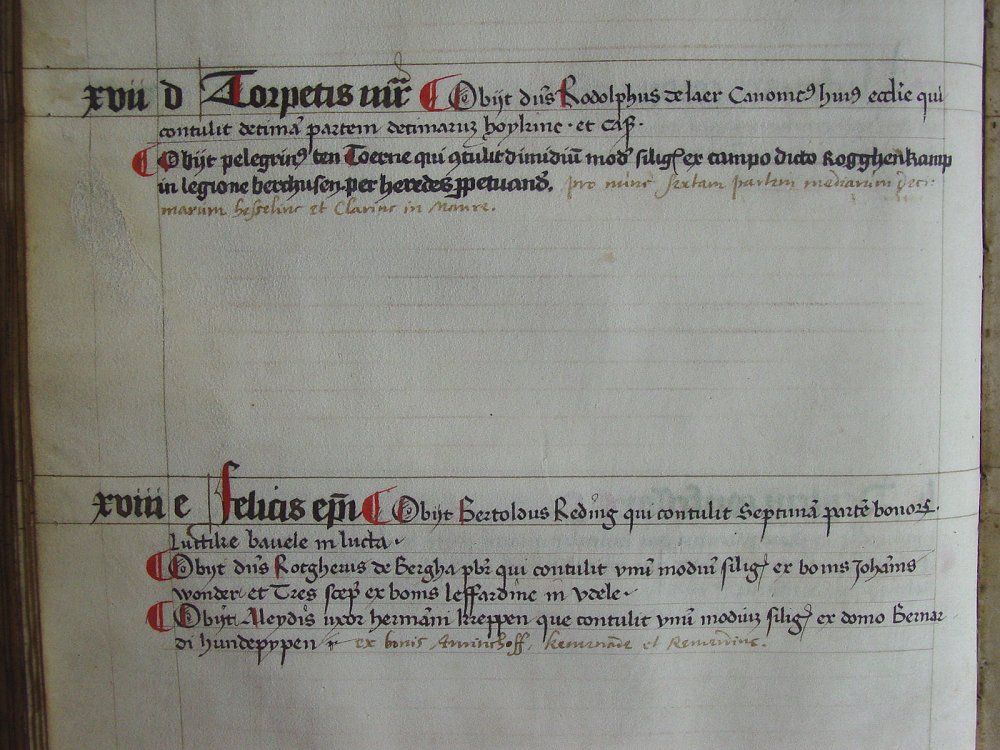 xvii d Torpetis mr̄ Obijt dūs Rodolphus de laer Canonicꝰ huiꝰ eccl'ie qui
contulit decimā partem decimaruʒ hoykinc · et caſ ·
Obijt pelegrinꝰ ten Toerne qui ꝯtulit dimidiū mod' siligꝭ ex campo dicto Rogghenkamp
in legione berchusen per heredes ꝑpetuand'. pro nunc sextam partem mediarum deci:
marum hesselinc et Clarinc in Maure.
xviii e Felicis ep̄i Obijt Bertoldus Reding qui contulit Septimā partē bonorꝝ
Luttike bavele in lutta
Obijt dūs Rotgherus de Bergha pbr̄ qui contulit vnū modiū siligꝭ ex bonis Joħanis
wonder et Tres scep̄ ex bonis leffardinc in vdele
Obijt Aleydis uxor hermāni kreppen que contulit vnū modiuʒ siligꝭ ex domo Bernar
di hundepypen ex bonis kemenade et